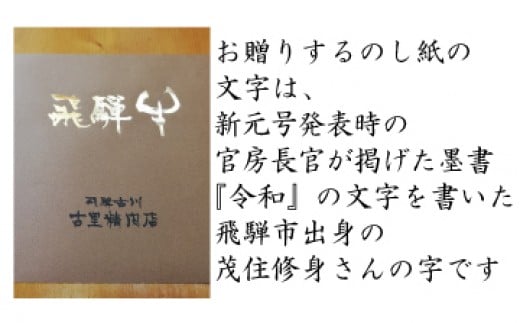 飛騨牛
飛騨古川
古里精肉店
お贈りするのし紙の
文字は、
新元号発表時の
官房長官が掲げた墨書
『令和』の文字を書いた
飛騨市出身の
茂住修身さんの字です